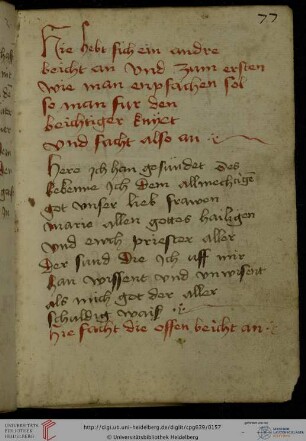 77
Hie hebt sich ein andre
beicht an Und zum ersten
wie man enpfachen sol
so man fur den
beichtiger kniet
Und facht also an
Here Ich han gesündet des
bekenne Ich dem allmechtigē
got vnser lieb frawen
marie allen gottes hailigen
Und euch priester aller
der sund Die Ich uff mir
han wissent und unwissent
als mich got der aller
schuldig waisß
Hie facht die offen beicht an
UNIVERSITÄTS-
BIBLIOTHEK
HEIDELBERG
http://digi.ub.uni-heidelberg.de/diglit/cpg639/0157
© Universitätsbibliothek Heidelberg